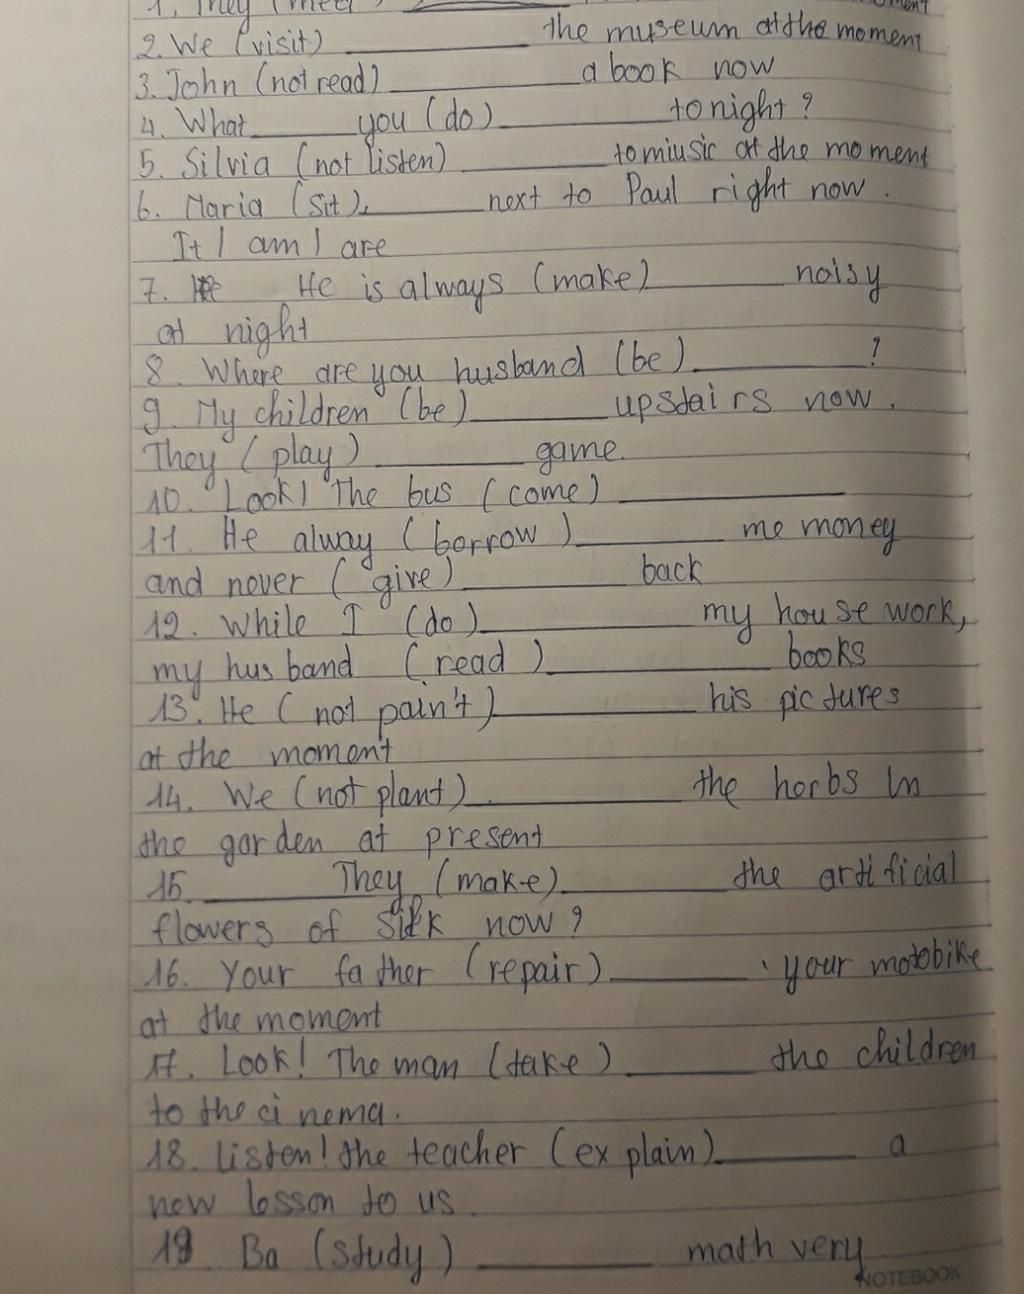 1, They (meet)
2. We (visit) __________ the museum at the moment
3. John (not read) __________ a book now
4. What _____ you (do) __________ tonight?
5. Silvia (not listen) ________ to miusic at the moment
6. Maria (sit), _______ next to Paul right now.
It I am I are
7. He is always (make) ________ noisy
at night
8. Where are you husband (be) __________?
9. My children (be) ________ upstairs now.
They (play) ________ game.
10. Look! The bus (come) ____________
11. He alway (borrow) ________ me money
and never (give) __________ back
12. While I (do) ____________ my house work,
my husband (read) ____________ books
13. He (not pain't) __________ his pictures
at the moment
14. We (not plant) __________ the herbs in
the garden at present
15. _______ They (make) _________ the artificial
flowers of silk now?
16. Your father (repair) ________ your motobike
at the moment
17. Look! The man (take) _______ the children
to the cinema.
18. Listen! the teacher (explain) ________ a
new lesson to us.
19 Ba (study) _________ math very
NOTEBOOK